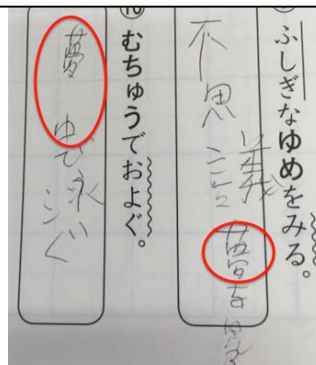 ふしぎなゆめをみる。
不思議夢な
⑩ むちゅうでおよぐ。
夢 ゆび泳いぐ